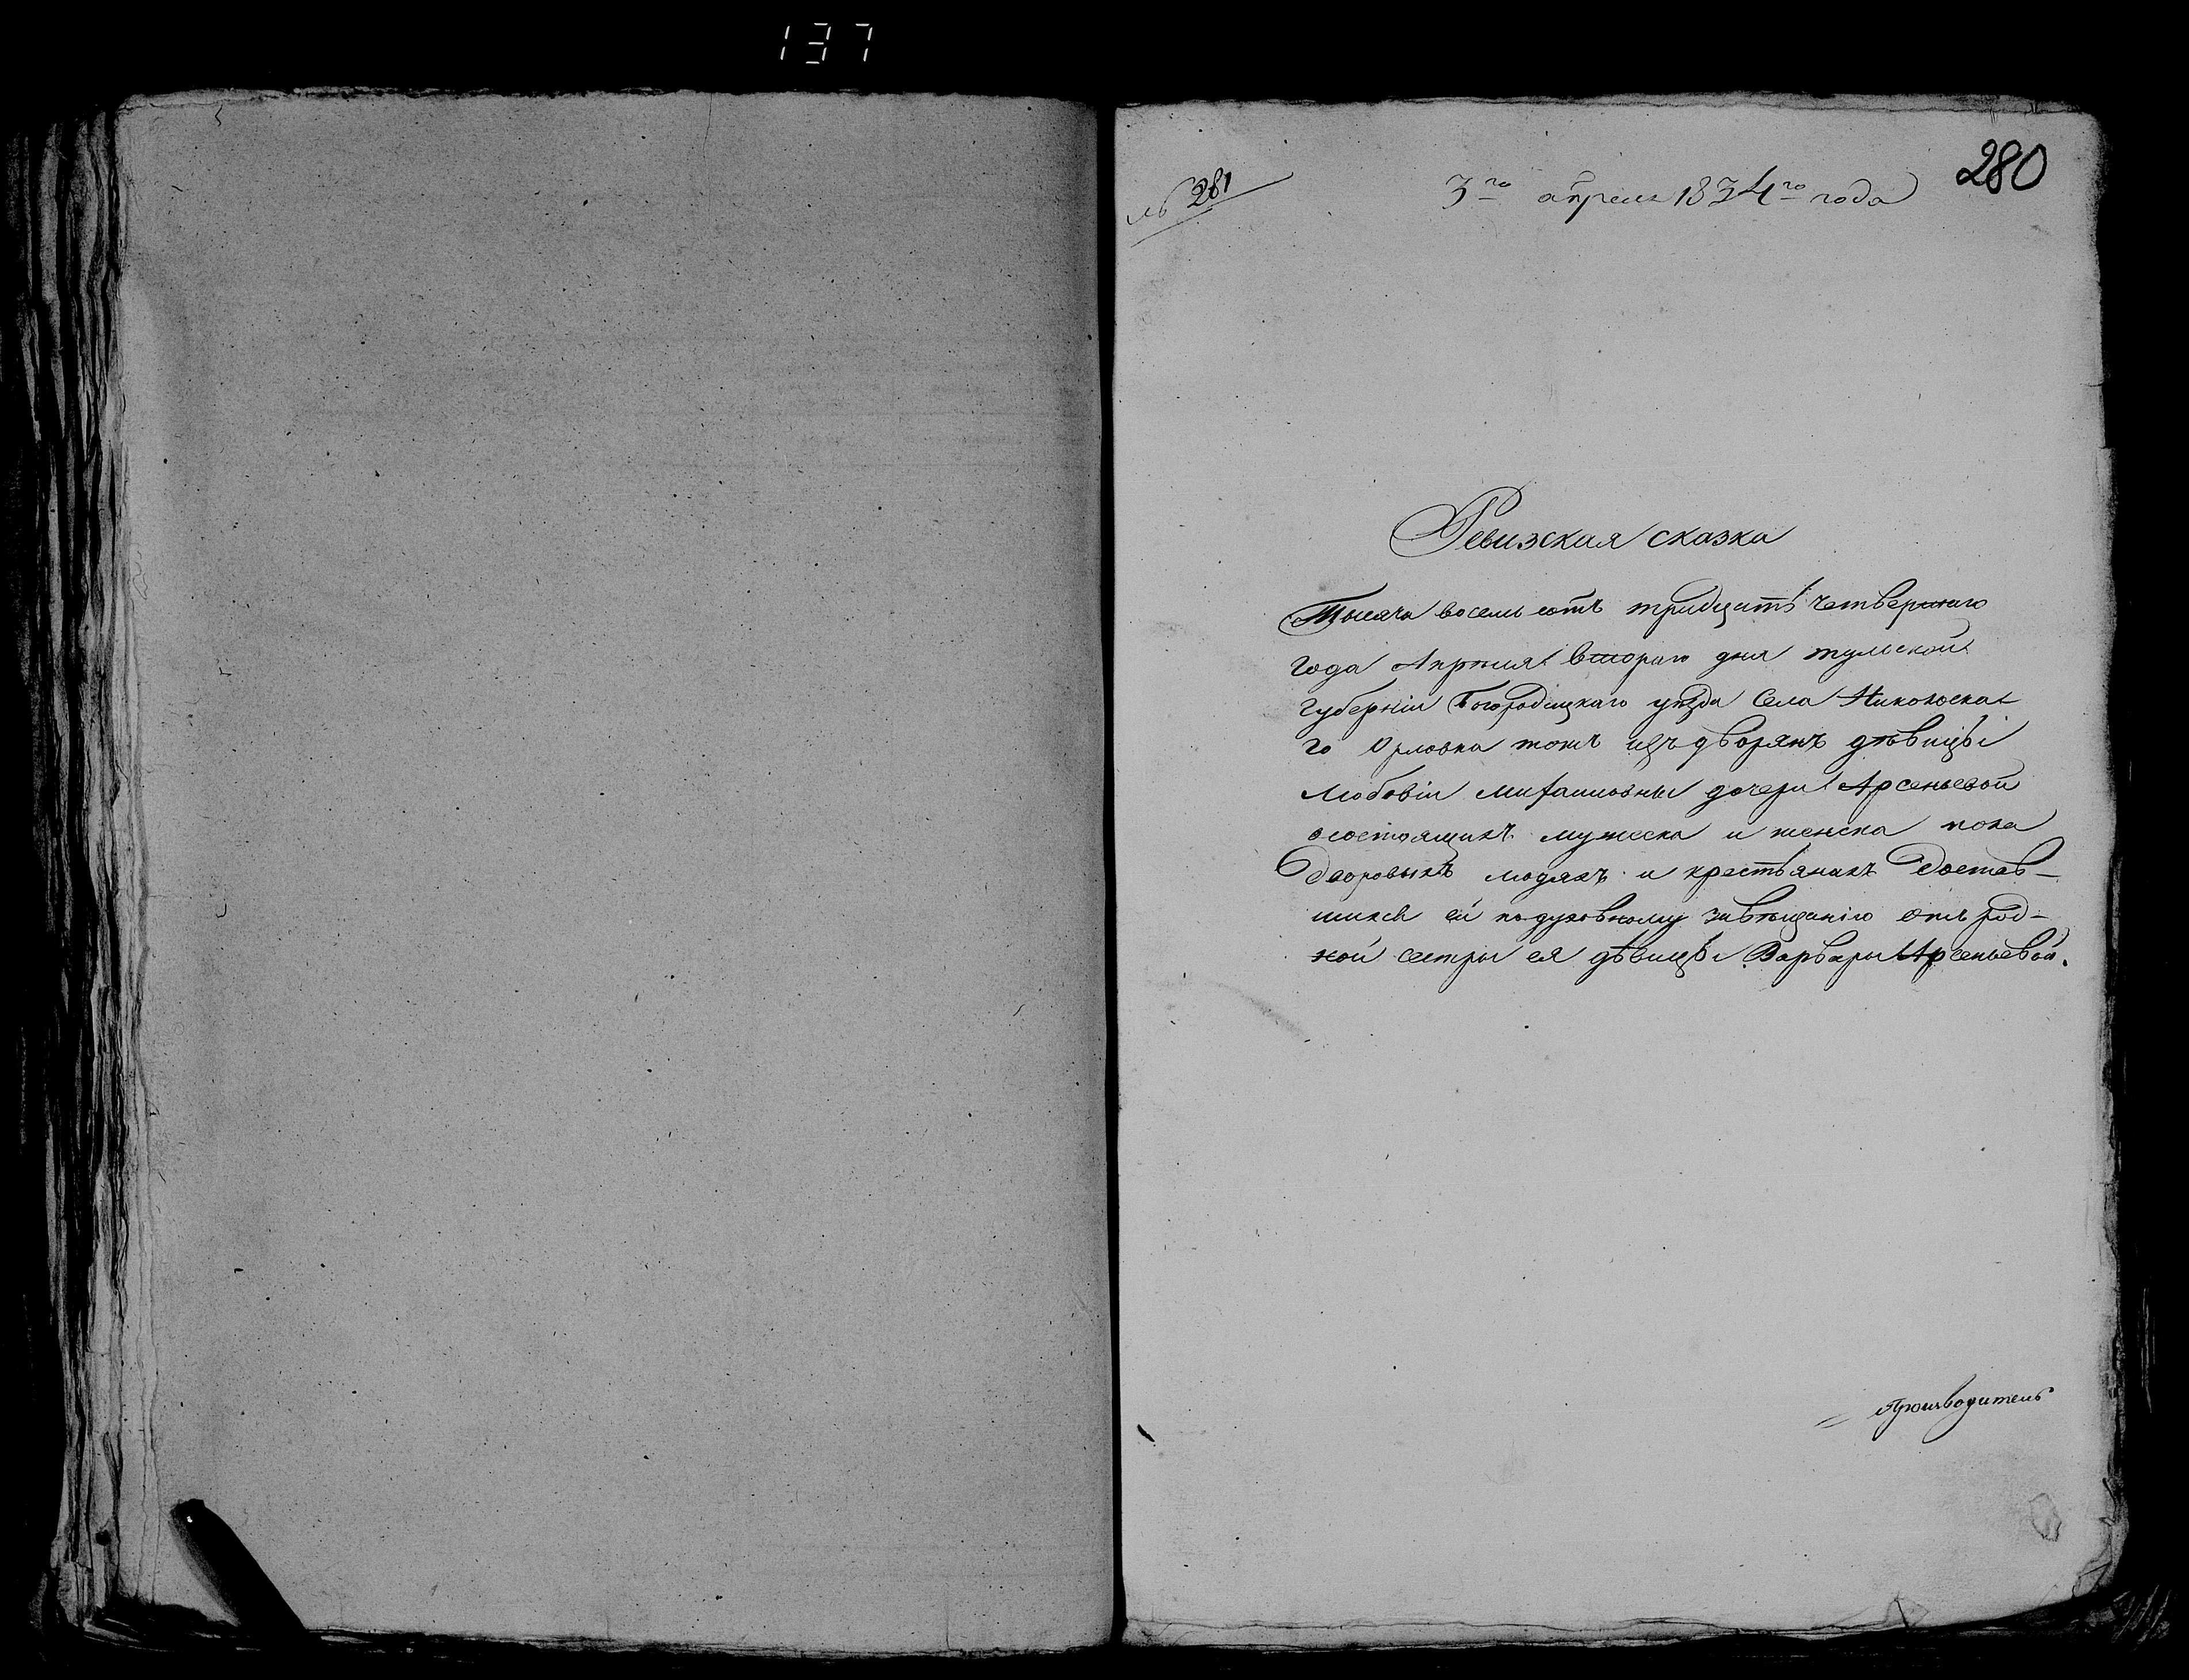 137
280
№ 281
3го апреля 1834го года
Ревизская сказка
Тысяча восемь сотъ тридцать четвертаго
года Апреля втораго дня тульской
губерніи Богородицкаго уѣзда Села Никольска
го Орловка тожъ изъ дворянъ дѣвицы
Любовіи Михаиловны дочери Арсеньевой
осостоящихъ мужеска и женска пола
дворовыхъ людяхъ и крестьянахъ Достав-
шихся ей подуховному завѣщанію отъ род-
ной сестры ея дѣвицы Варвары Арсеньевой.
Производитель